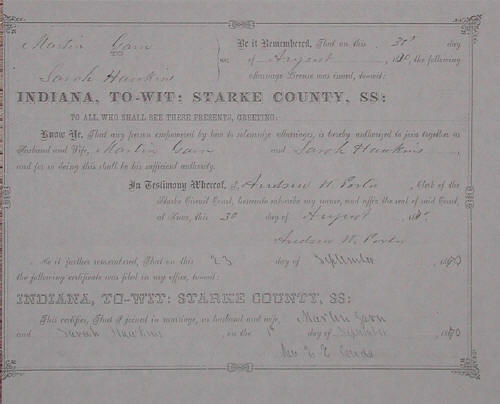 Martin Garn
Be it Remembered, That on this 30th day
of August 1870, the following
Sarah Hawkins
Marriage License was issued, to-wit:
INDIANA, TO-WIT: STARKE COUNTY, SS:
TO ALL WHO SHALL SEE THESE PRESENTS, GREETING:
Know Ye, That any person empowered by law to solemnize Marriages, is hereby authorized to join together as
Husband and Wife, Martin Garn and Sarah Hawkins
and for so doing this shall be his sufficient authority.
In Testimony Whereof, I, Andrew W. Porter, Clerk of the
Starke Circuit Court, hereunto subscribe my name, and affix the seal of said Court,
at Knox, this 30 day of August
Andrew W. Porter
Be it further remembered, That on this 23 day of September 1870
the following certificate was filed in my office, to-wit:
INDIANA, TO-WIT: STARKE COUNTY, SS:
This certifies, That I joined in marriage, as husband and wife, Martin Garn
and Sarah Hawkins, on the 1st day of September 1870